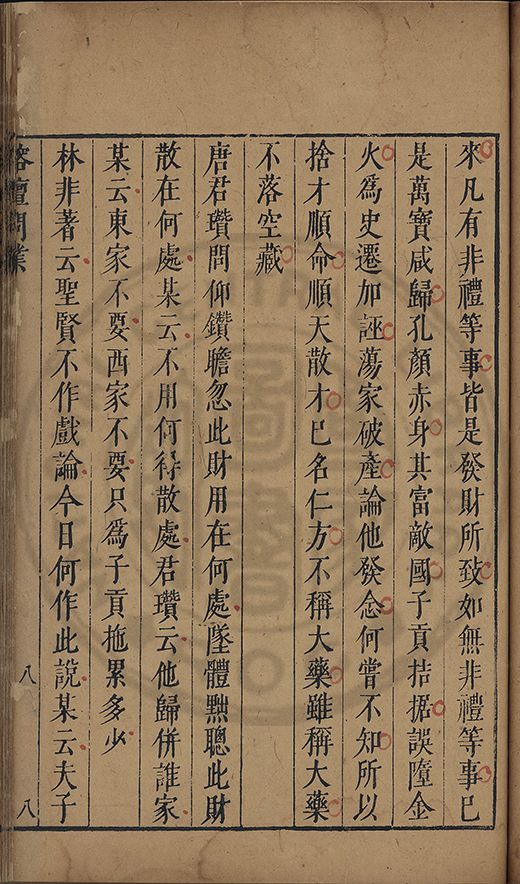 來凡有非禮等事皆是發財所致如無非禮等事已
是萬寶咸歸孔顏赤身其富敵國子貢拮据誤墮金
火爲史遷加誣蕩家破產論他發念何嘗不知所以
捨才順命順天散才已名仁方不稱大藥雖稱大藥
不落空藏
唐君瓚問仰鑽瞻忽此財用在何處墜體黜聰此財
散在何處某云不用何得散處君瓚云他歸併誰家
某云東家不要西家不要只爲子貢拖累多少
林非著云聖賢不作戲論今日何作此說某云夫子
榕壇問業
八
八